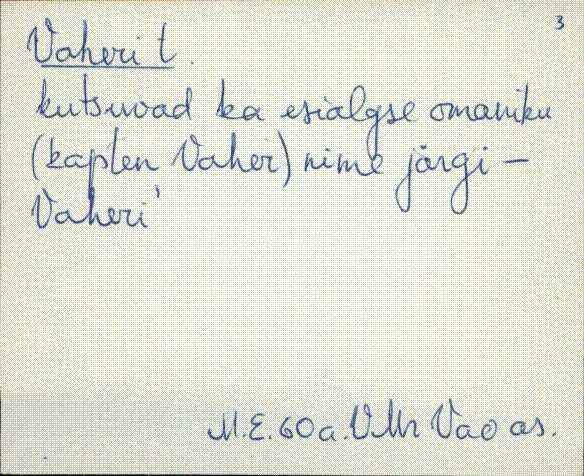 3
Vaheri t.
kutsuvad ka esialgse omaniku
(kapten Vaher) nime järgi –
Vaheri'
M.E. 60a. VMr Vao as.